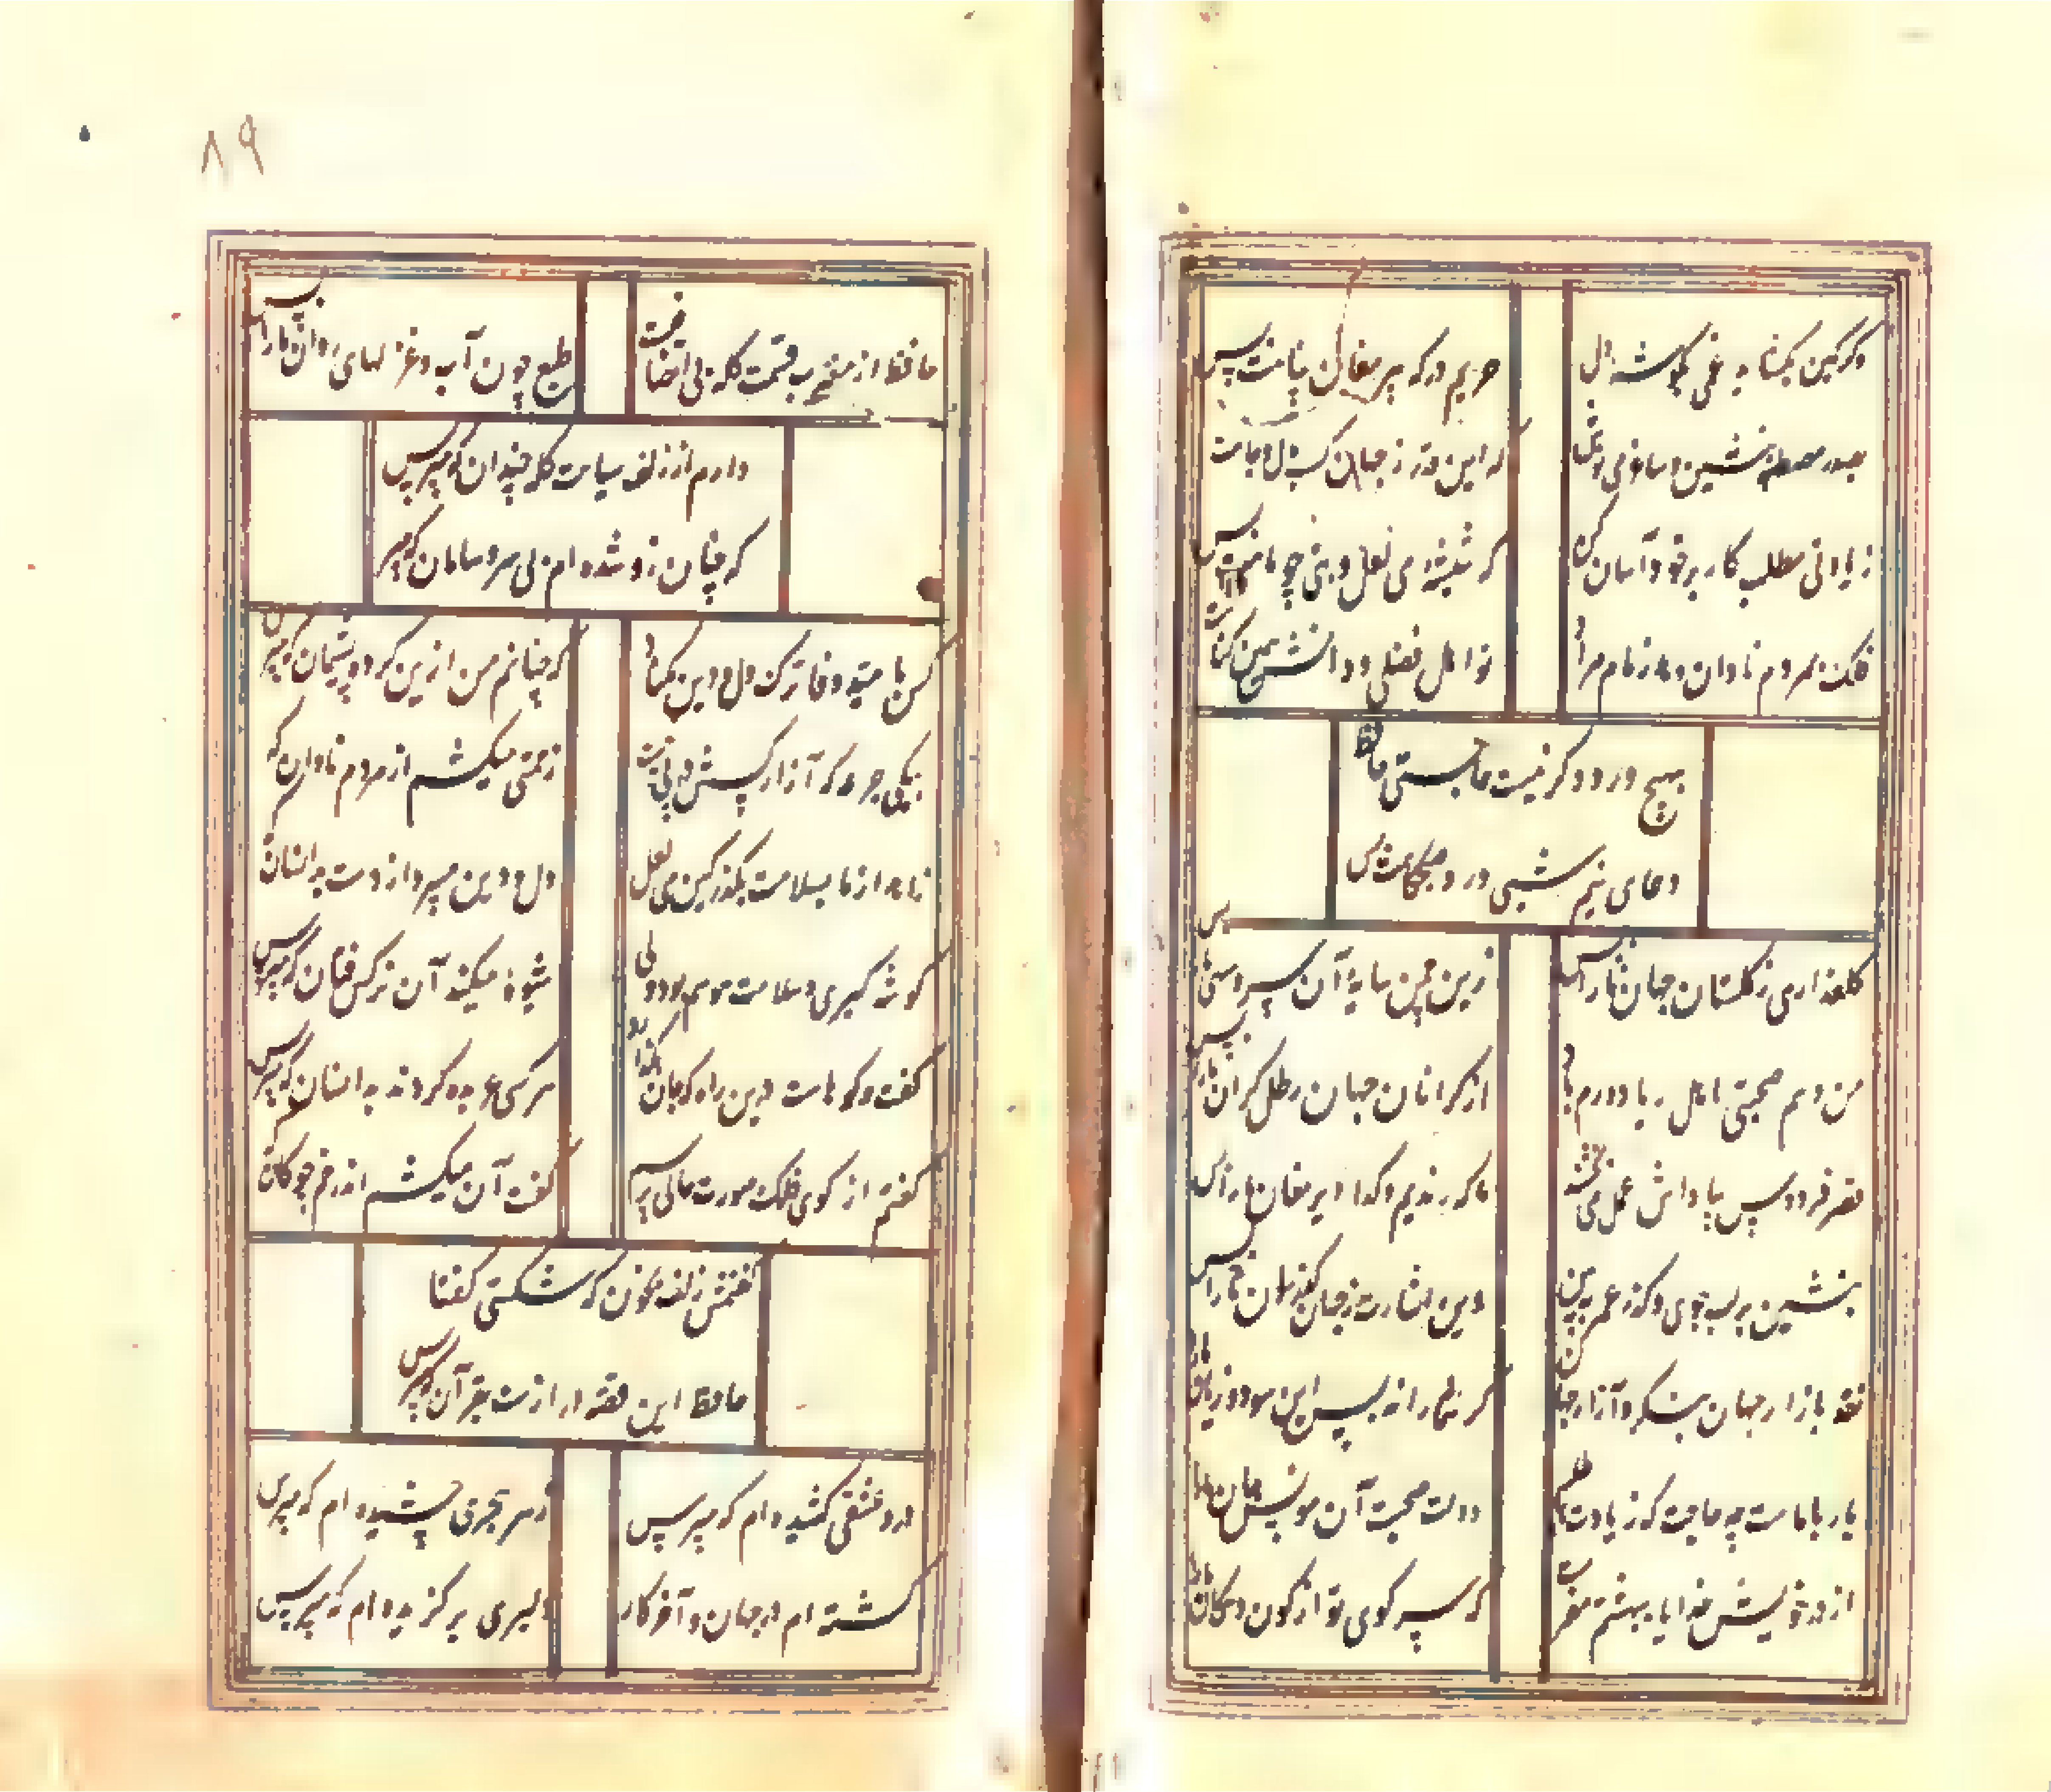 وگر کمین بگشاید غمی ز گوشه دل
حریم درگه پیر مغان پناهت بس
بصدر مصطبه بنشین و ساغر می نوش
که این قدر ز جهان کسب مال و جاهت بس
زیادتی مطلب کار بر خود آسان کن
که شیشه می لعل و بتی چو ماهت بس
فلک بمردم نادان دهد زمام مراد
تو اهل فضلی و دانش همین گناهت بس
بهیچ ورد دگر نیست حاجتی حافظ
دعای نیم شبی و درد صبحگاهت بس
گلعذاری ز گلستان جهان ما را بس
زین چمن سایه آن سرو سهی ما را بس
من و هم صحبتی اهل ریا دورم باد
از گرانان جهان رطل گران ما را بس
قصر فردوس بپاداش عمل می بخشند
ما که رندیم و گدا دیر مغان ما را بس
بنشین بر لب جوی و گذر عمر ببین
کین اشارت ز جهان گذران ما را بس
نقد بازار جهان بنگر و آزار جهان
گر شما را نه بس این سود و زیان ما را بس
یار با ماست چه حاجت که زیادت طلبیم
دولت صحبت آن مونس جان ما را بس
از در خویش خدایا ببهشتم مفرست
که سر کوی تو از کون و مکان ما را بس
۸۹
حافظ از مشرب قسمت گله بی انصافیست
طبع چون آب و غزلهای روان ما را بس
دارم از زلف سیاهت گله چندان که مپرس
که چنان زو شده ام بی سر و سامان که مپرس
کس بامید وفا ترک دل و دین مکناد
که چنانم من ازین کرده پشیمان که مپرس
بیکی جرعه که آزار کسش در پی نیست
زحمتی میکشم از مردم نادان که مپرس
زاهد از ما بسلامت بگذر کین می لعل
دل و دین میبرد از دست بدانسان که
گوشه گیری و سلامت هوسم بود ولی
شیوه میکند آن نرگس فتان که مپرس
گفت و گوهاست درین راه که جان بگدازد
هر کسی عربده کردند بدانسان که مپرس
گفتم از گوی فلک صورت حالی پرسم
گفت آن میکشم اندر خم چوگان که
گفتمش زلف بخون که شکستی گفتا
حافظ این قصه درازست بقرآن که مپرس
درد عشقی کشیده ام که مپرس
زهر هجری چشیده ام که مپرس
گشته ام در جهان و آخر کار
دلبری برگزیده ام که مپرس